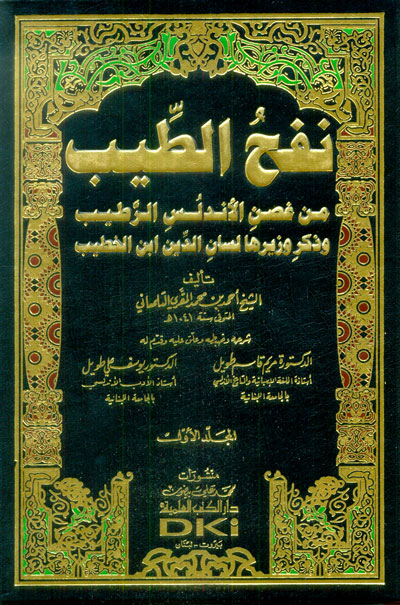 نفحُ الطِّيب
من غصنِ الأندلُسِ الرَّطيب
وذكرِ وزيرها لسانِ الدِّين ابن الخطيب
تأليف
الشيخ أحمد بن محمد المقري التلمساني
المتوفى سنة ١٠٤١هـ
شرحه وضبطه وعلق عليه وقدم له
الدكتورة مريم قاسم طويل
أستاذة اللغة الإسبانية والتاريخ الأندلسي
بالجامعة اللبنانية
الدكتور يوسف علي طويل
أستاذ الأدب الأندلسي
بالجامعة اللبنانية
المجلد الأول
منشورات
محمد علي بيضون
دار الكتب العلمية
DKi
بيروت - لبنان